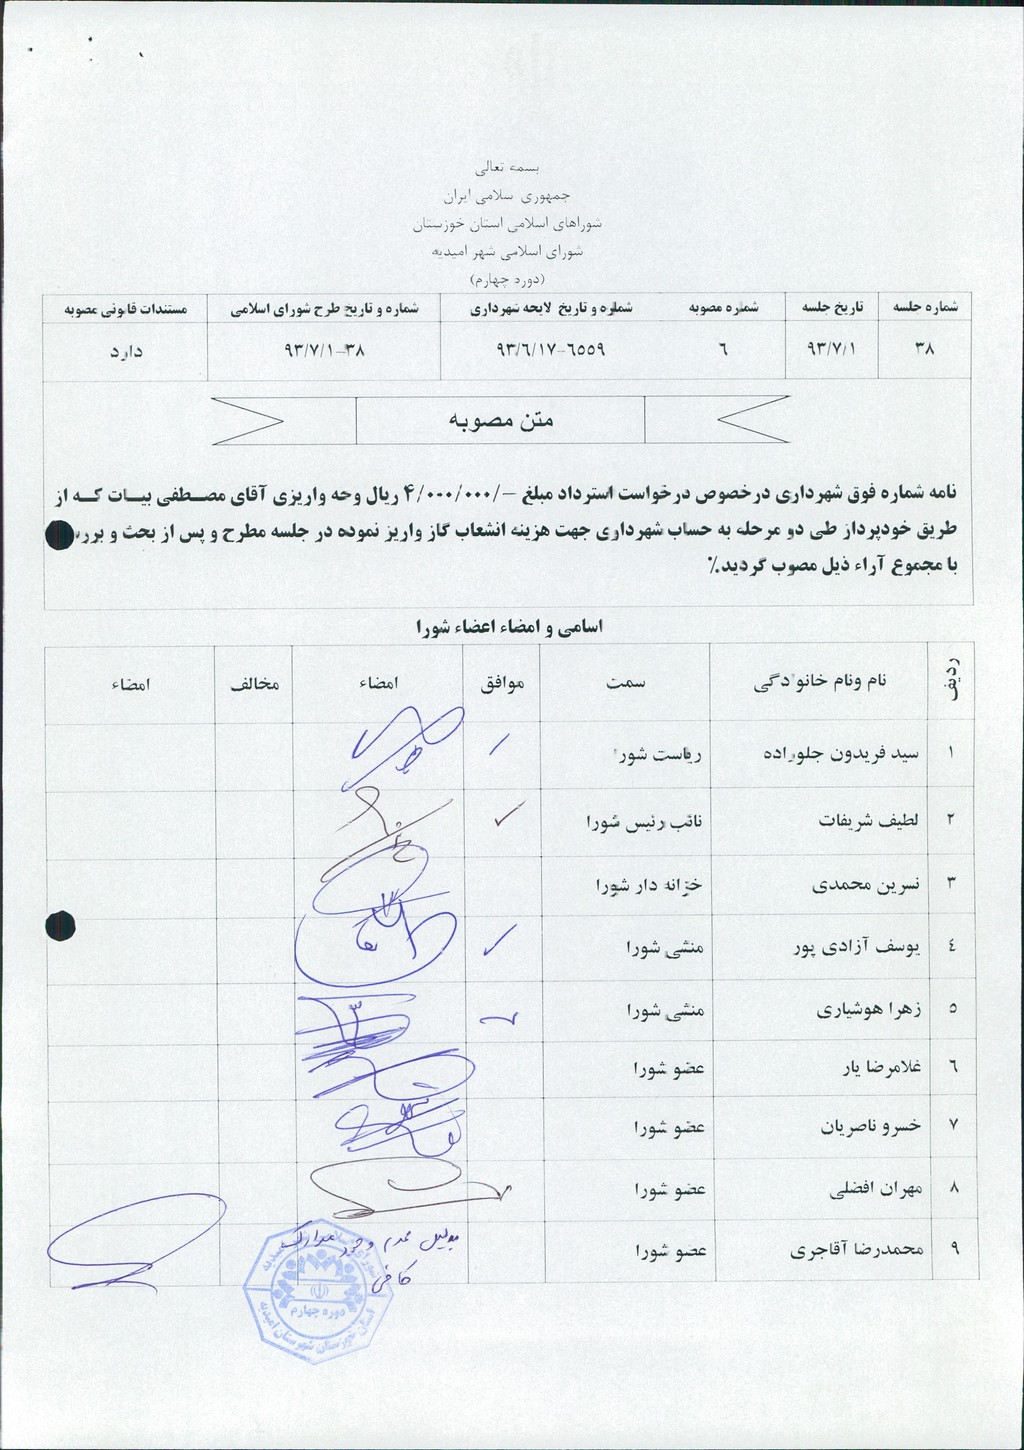 بسمه تعالی
جمهوری سلامی ایران
شوراهای اسلامی استان خوزستان
شورای اسلامی شهر امیدیه
(دوره چهارم)
شماره جلسه تاریخ جلسه شماره مصوبه شماره و تاریخ لایحه شهرداری شماره و تاریخ طرح شورای اسلامی مستندات قانونی مصوبه
۳۸ ۹۳/۷/۱ ۶ ۶۵۵۹-۹۳/۶/۱۷ ۳۸-۹۳/۷/۱ دارد
متن مصوبه
نامه شماره فوق شهرداری درخصوص درخواست استرداد مبلغ -/۴/۰۰۰/۰۰۰ ریال وجه واریزی آقای مصطفی بیات که از
طریق خودپرداز طی دو مرحله به حساب شهرداری جهت هزینه انشعاب گاز واریز نموده در جلسه مطرح و پس از بحث و برر
با مجموع آراء ذیل مصوب گردید.٪
اسامی و امضاء اعضاء شورا
ردیف نام ونام خانوادگی سمت موافق امضاء مخالف امضاء
۱ سید فریدون جلوزاده ریاست شورا
۲ لطیف شریفات نائب رئیس شورا
۳ نسرین محمدی خزانه دار شورا
۴ یوسف آزادی پور منشی شورا
۵ زهرا هوشیاری منشی شورا
۶ غلامرضا یار عضو شورا
۷ خسرو ناصریان عضو شورا
۸ مهران افضلی عضو شورا
۹ محمدرضا آقاجری عضو شورا
بدلیل عدم وجود مدارک
کافی
دوره چهارم
استان خوزستان شهرستان امیدیه